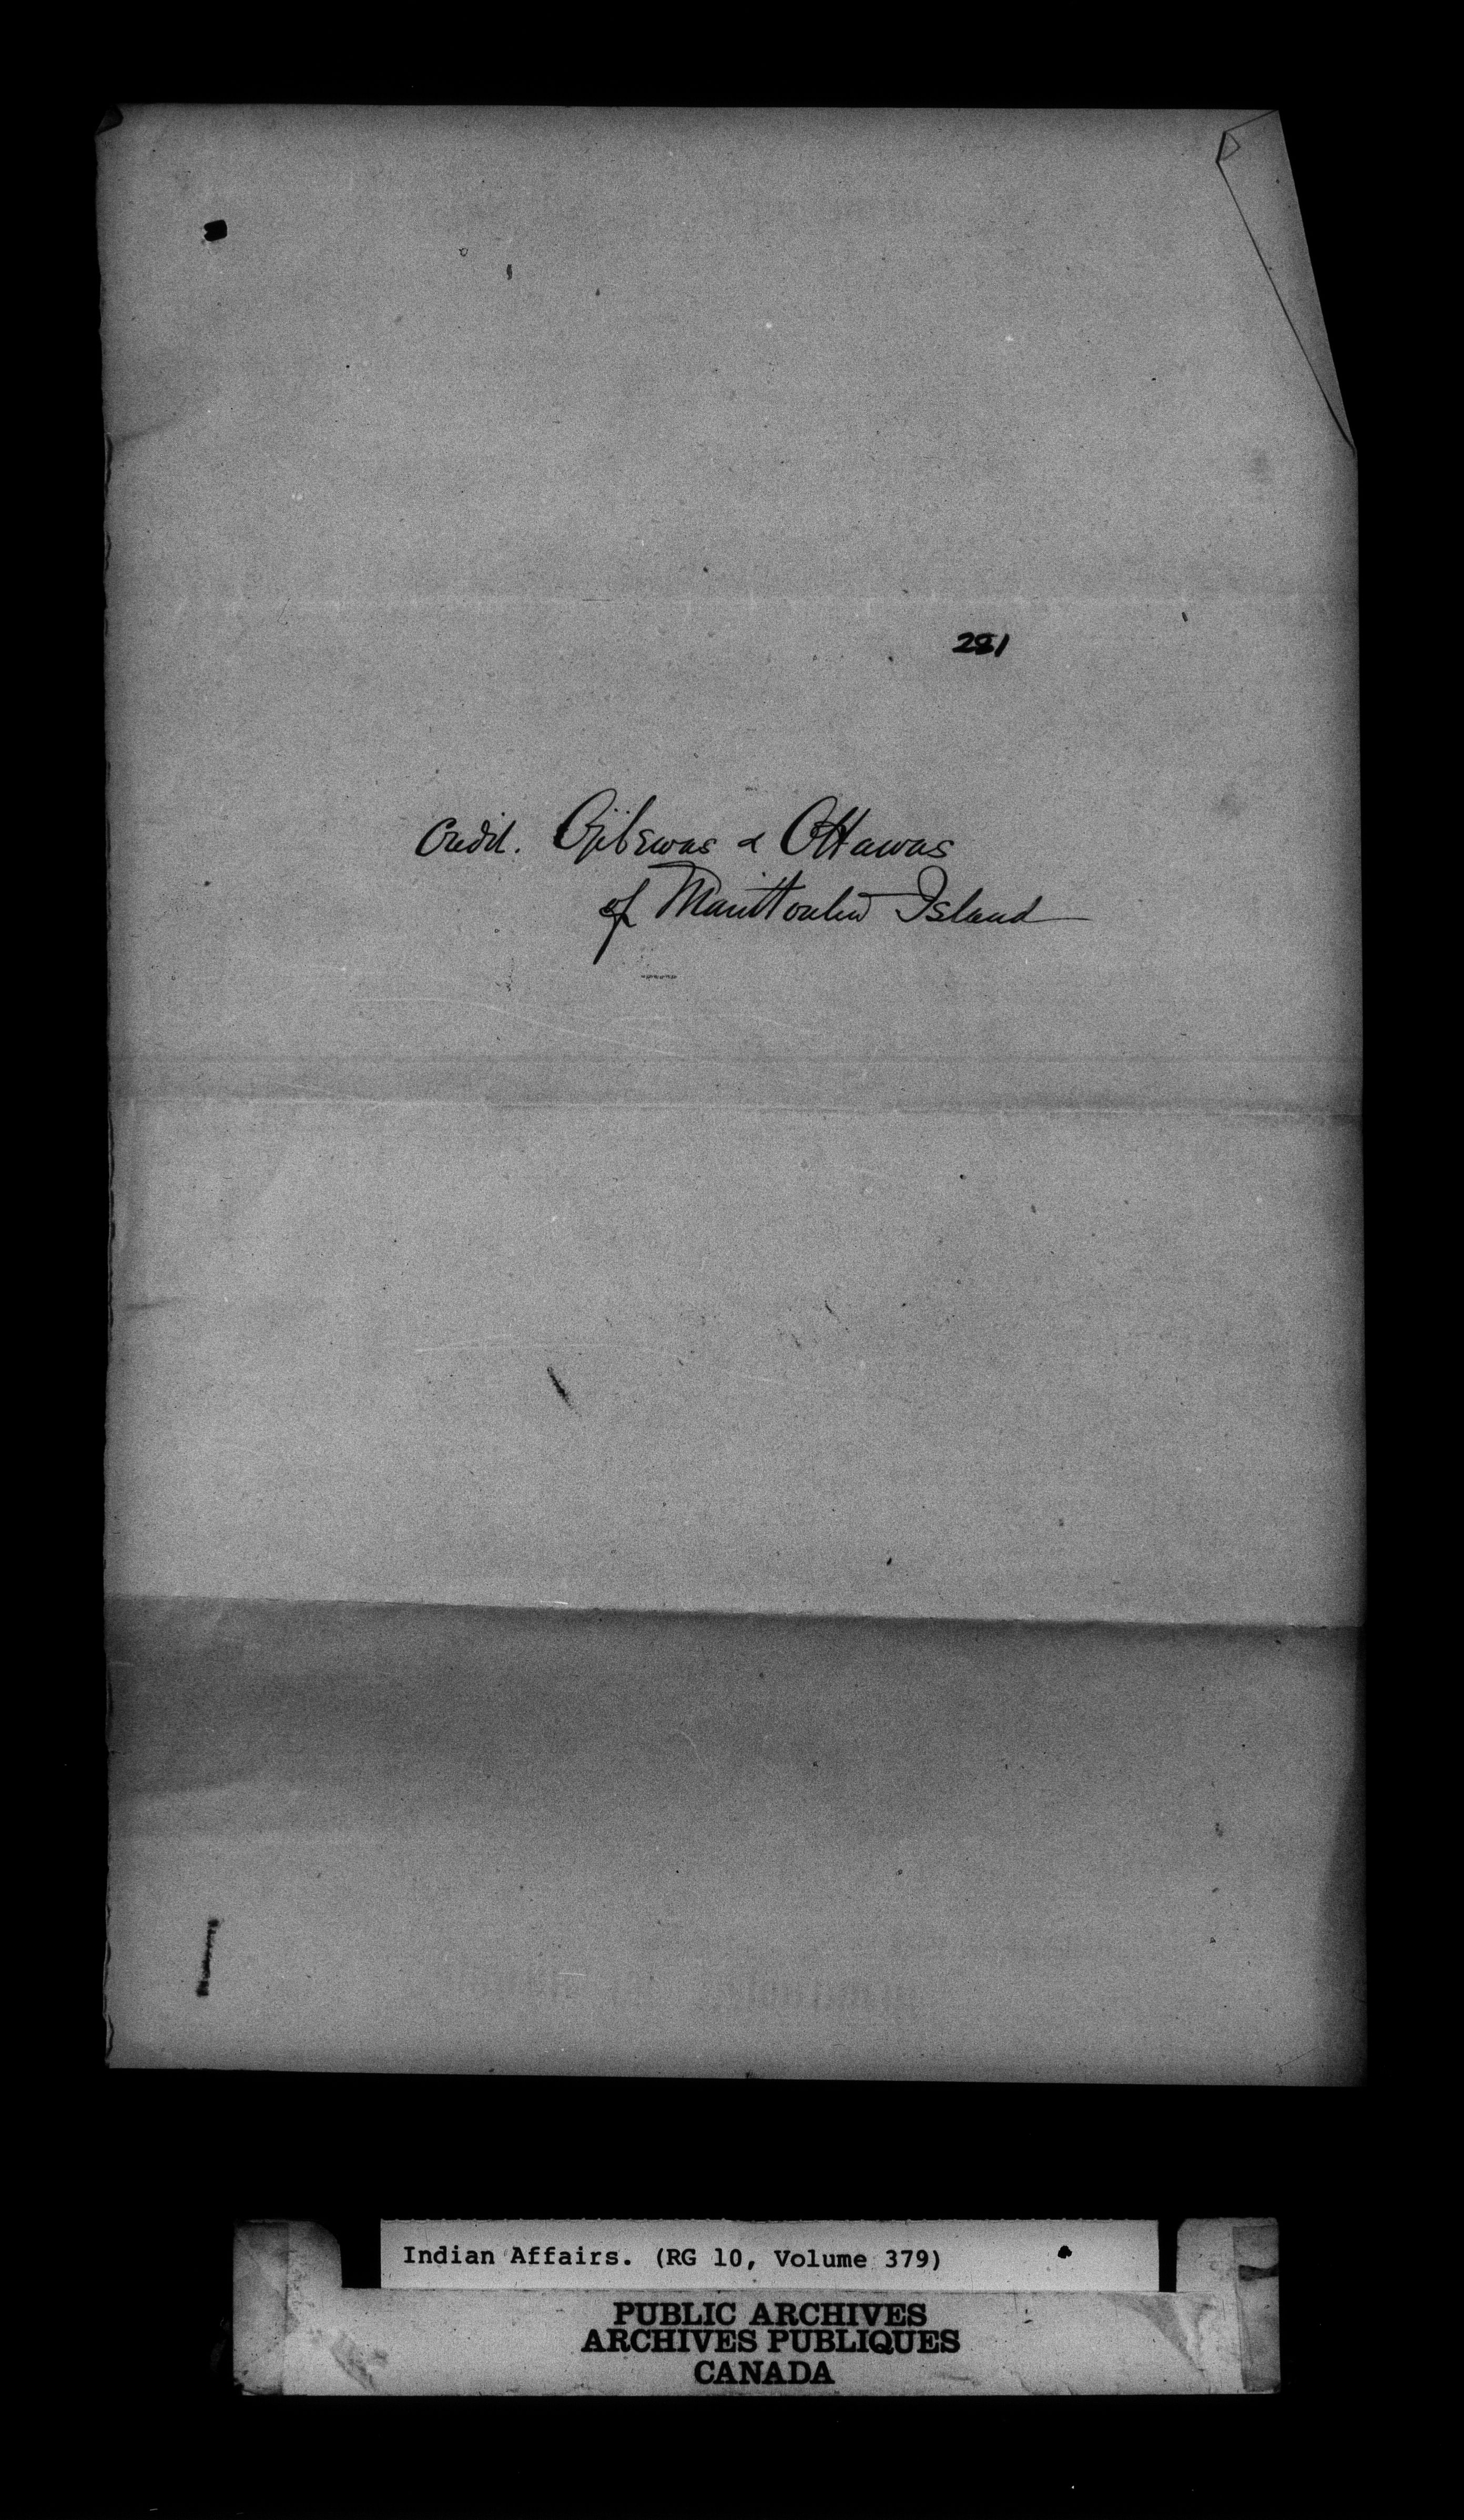 281
Credit. Ojibewas & Ottawas
of Manittoulin Island
Indian Affairs. (RG 10, Volume 379)
PUBLIC ARCHIVES
ARCHIVES PUBLIQUES
CANADA